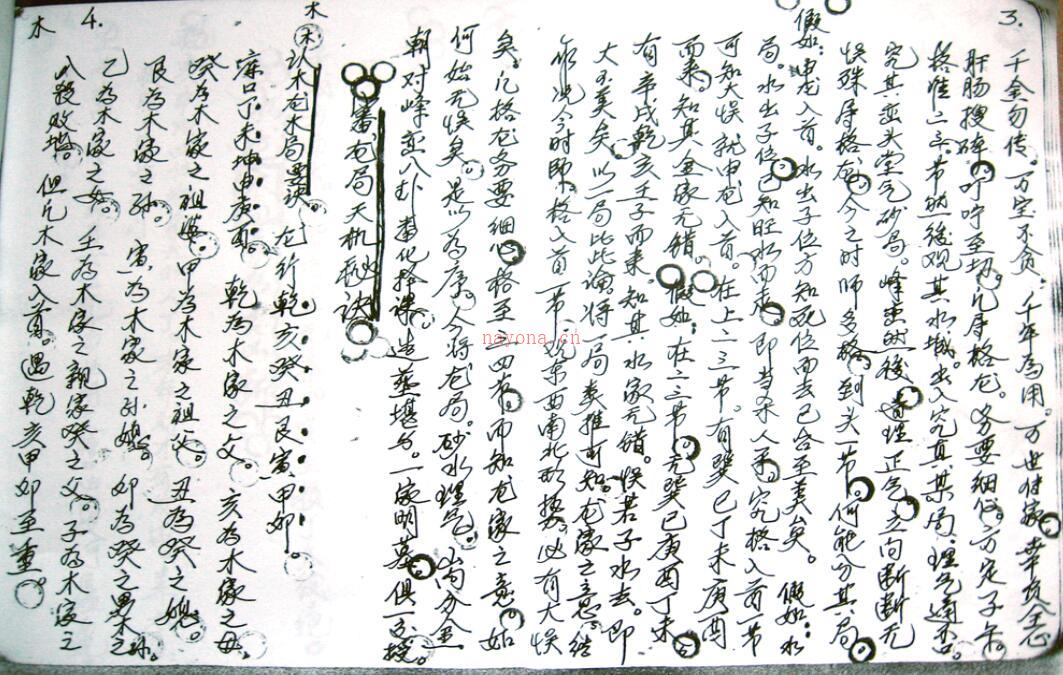 3.
千金勿传。万宝不贪。千年为用。万世付家。幸灰全心
肝肠搜碎。叮咛至切。凡序格龙。务要细们。方定子午
格准二三节。然后观其水城。出入究真某局。理气通否。
究其峦头堂气砂局。峰峦
误殊序格龙。今之时师多格到头一节。何能分其局
假如：申龙入首。水出子位方知死位而去已合至美矣。假如：水
局。水出子位。已知旺水而未。即
可知大误就申龙入首。在上二三节。有巽巳丁未庚酉
而来。知其金家无错。假如：在二三节。无巽巳庚酉丁未
有辛戌乾亥壬子而来。知其水家无错。误若子水去。即
大至美矣。以一局比此论将一局类推可知。龙家之意。结
尔况今时师。格入首一节、说东西南北形势。必有大误
矣。凡格龙务要细心格至三四节而知龙家之意。如
何始无误矣。是以为序。今将龙局。砂水理气。山内分金
朝对峰峦八卦变化择课。造葬堪舆。一家明墓俱一交授。
审龙局天机秘诀
4.
木
木 认木龙木局要诀 龙行乾亥癸丑艮寅甲卯。
库口丁未坤申庚酉。乾为木家之父 亥为木家之母
癸为木家之祖婆。甲为木家之祖父。丑为癸之媳。
艮为木家之孙。寅为木家之孙媳。卯为癸之男木之孙。
乙为木家之女。壬为木家之亲家癸之父。子为木家之
八段败路。但凡木家入首。遇乾亥甲卯至重。
木
nayona.cn